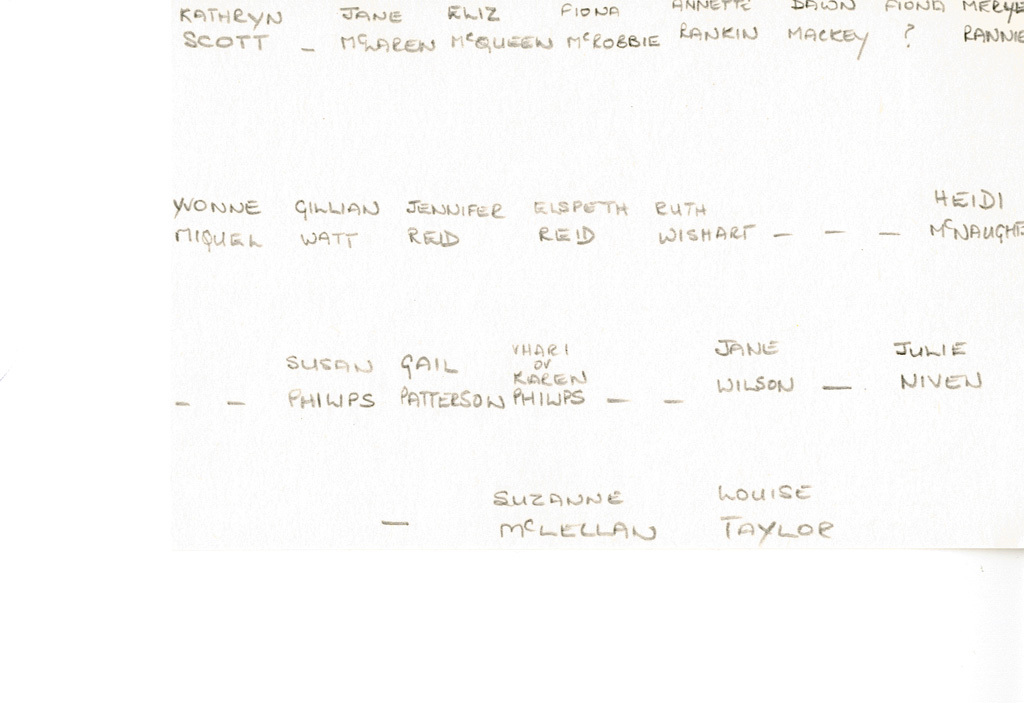 KATHRYN JANE ELIZ FIONA ANNETTE DAWN FIONA
SCOTT – McLAREN McQUEEN McROBBIE RANKIN MACKEY ? RANNIE
YVONNE GILLIAN JENNIFER ELSPETH RUTH HEIDI
MIQUEL WATT REID REID WISHART – – – McNAUGHT
SUSAN GAIL VHARI OR KAREN JANE JULIE
– – PHILIPS PATTERSON PHILIPS – – WILSON – NIVEN
SUZANNE LOUISE
– McLELLAN TAYLOR